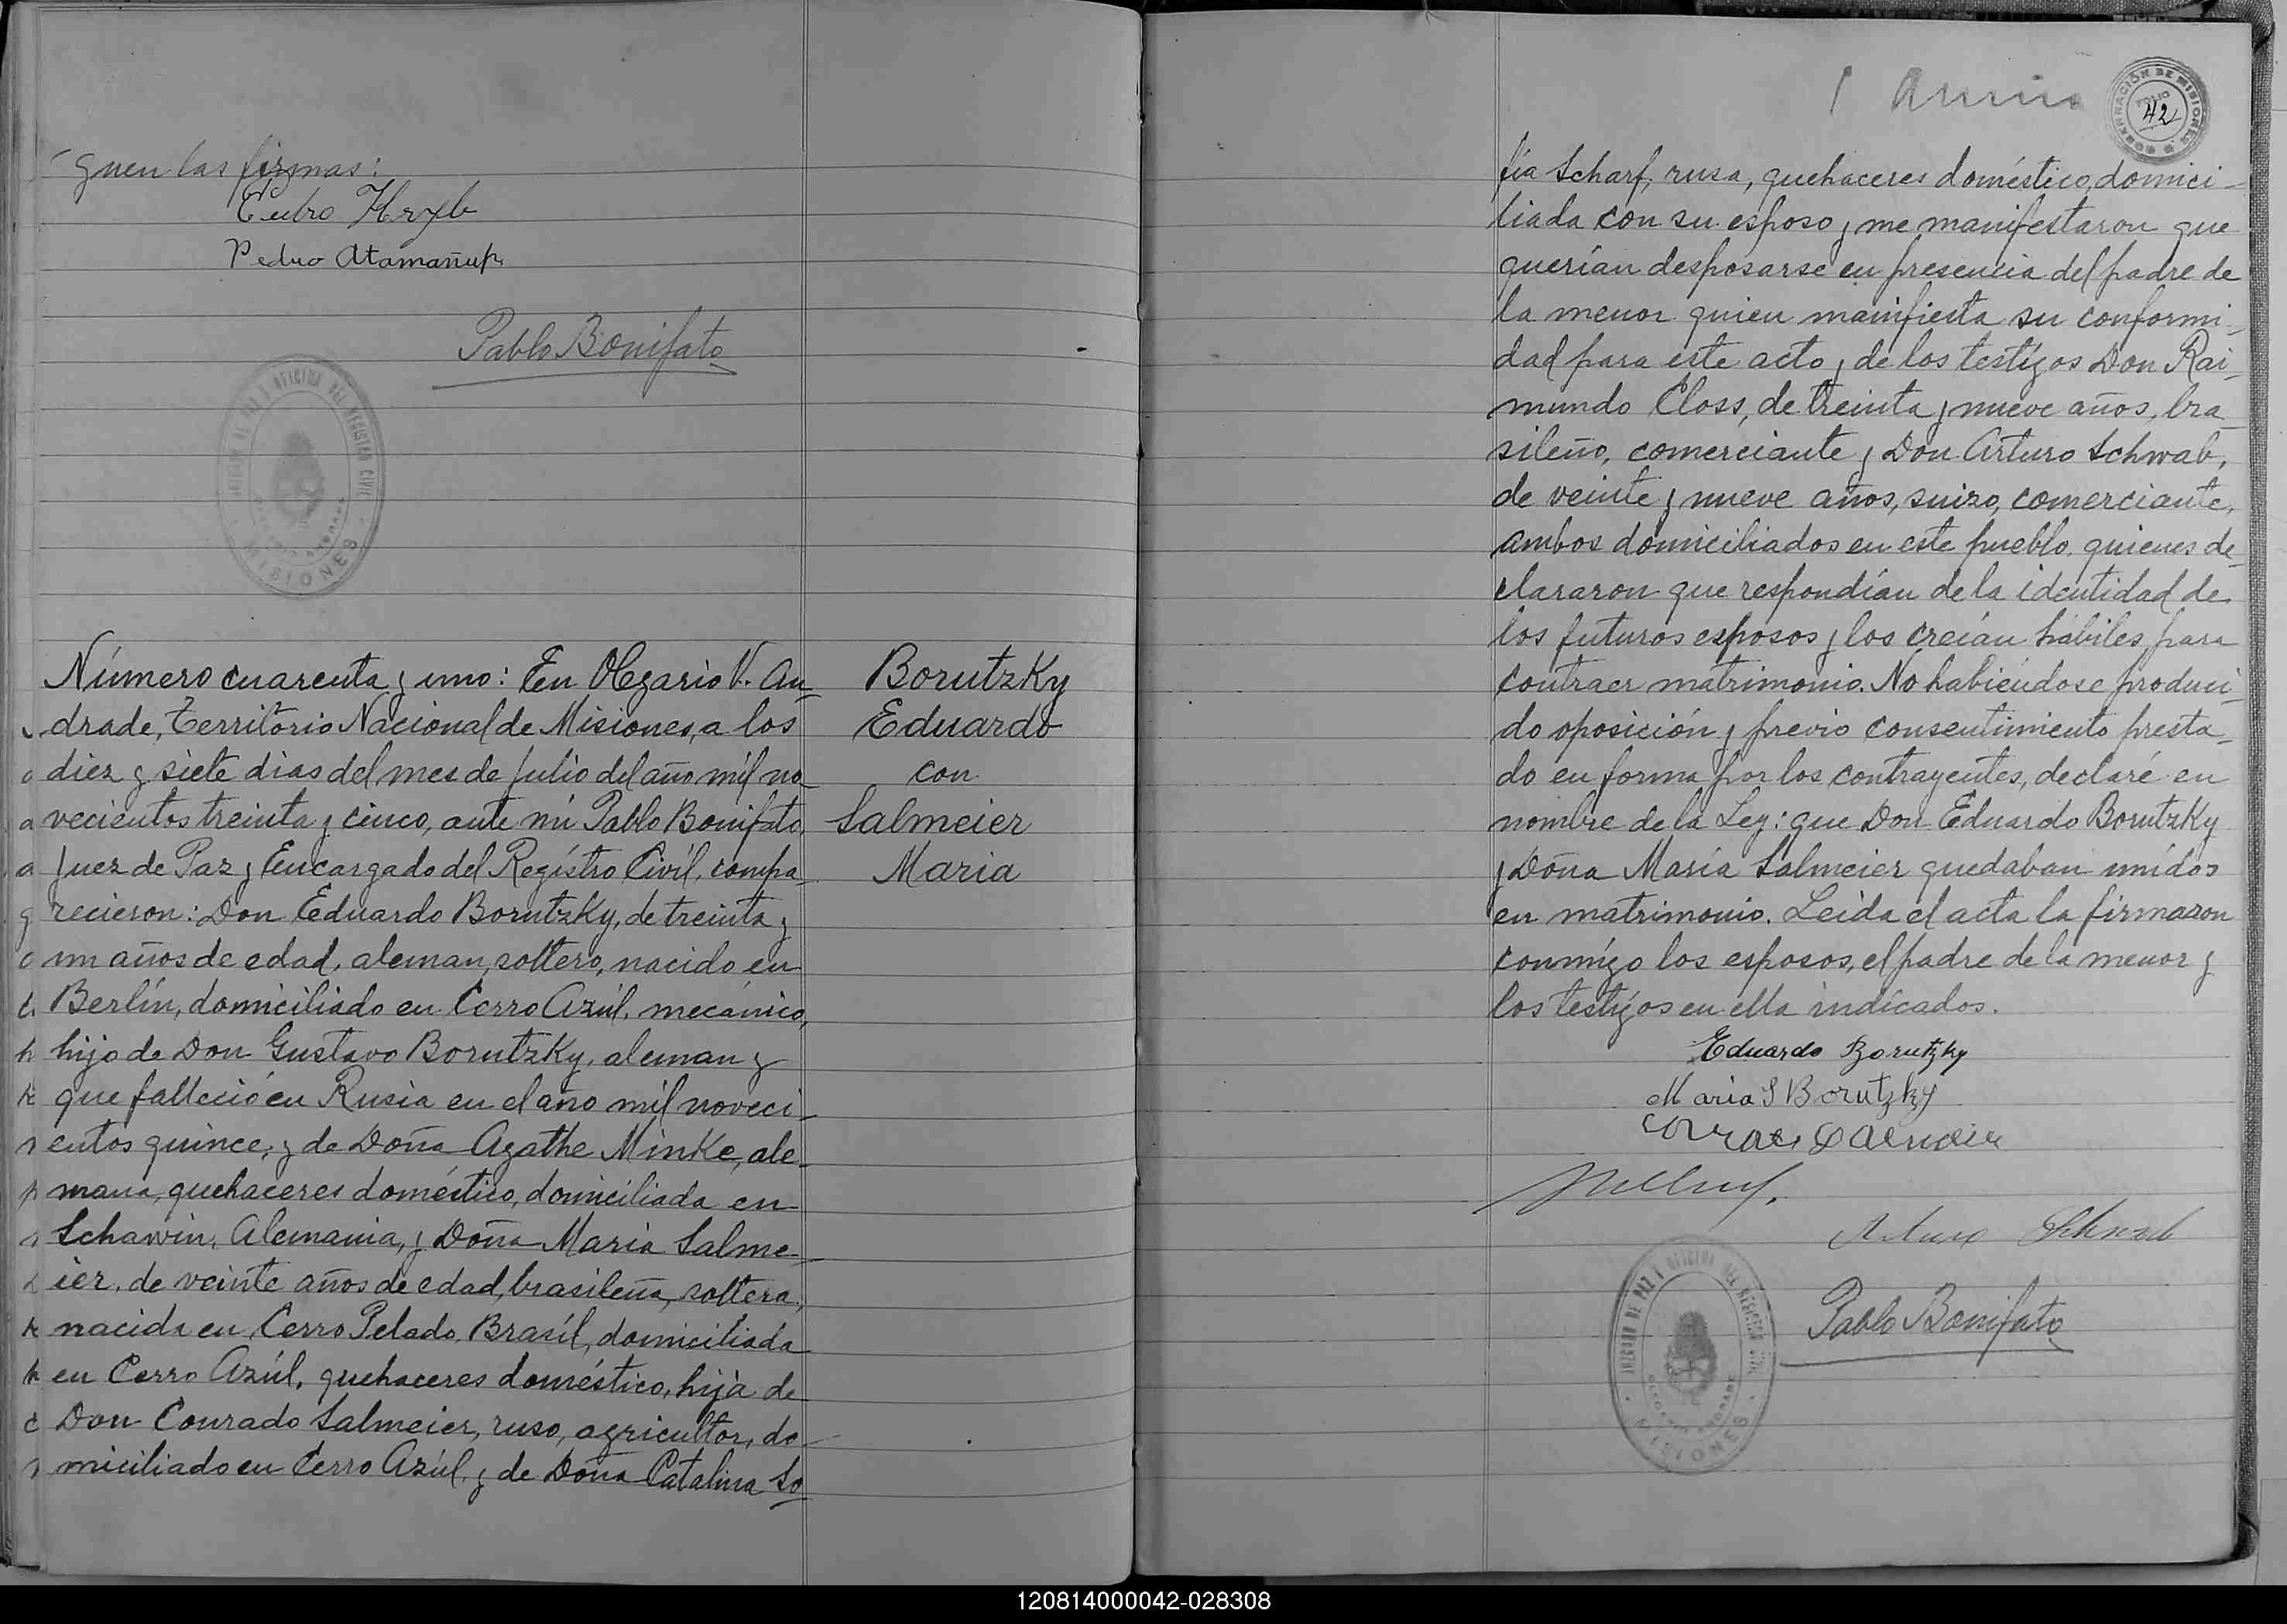 guen las firmas:
Pedro Atamañuk
Pablo Bonifato
JUZGADO DE PAZ Y OFICINA DEL REGISTRO CIVIL
MISIONES
Número cuarenta y uno: En Olegario V. An-
drade, Territorio Nacional de Misiones, a los
diez y siete dias del mes de Julio del año mil no-
vecientos treinta y cinco, ante mí Pablo Bonifato,
Juez de Paz y Encargado del Regístro Civíl, compa-
recieron: Don Eduardo Borutzky, de treinta y
un años de edad, aleman, soltero, nacido en
Berlín, domiciliado en Cerro Azúl, mecánico,
hijo de Don Gustavo Borutzky, aleman y
que falleció en Rusia en el año mil noveci-
entos quince, y de Doña Agathe Minke, ale-
mana, quehaceres doméstico, domiciliada en
Schawin, Alemania, y Doña Maria Salme-
ier, de veinte años de edad, brasileña, soltera,
nacida en Cerro Pelado, Brasíl, domiciliada
en Cerro Azúl, quehaceres doméstico, hija de
Don Conrado Salmeier, ruso, agricultor, do-
miciliado en Cerro Azúl, y de Doña Catalina So
Borutzky
Eduardo
con
Salmeier
Maria
GOBERNACIÓN DE MISIONES
FOLIO
42
fía Scharf, rusa, quehaceres doméstico, domici-
liada con su esposo y me manifestaron que
querían desposarse en presencia del padre de
la menor quien manifiesta su conformi-
dad para este acto y de los testígos Don Rai-
mundo Closs, de treinta y nueve años, bra-
sileño, comerciante y Don Arturo Schwab,
de veinte y nueve años, suizo, comerciante,
ambos domiciliados en este pueblo, quienes de-
clararon que respondían de la identidad de
los futuros esposos y los creían hábiles para
contraer matrimonio. No habiéndose produci-
do oposición y previo consentimiento presta-
do en forma por los contrayentes, declaré en
nombre de la Ley: que Don Eduardo Borutzky
y Doña María Salmeier quedaban unídos
en matrimonio. Leida el acta la firmaron
conmígo los esposos, el padre de la menor y
los testígos en ella indicados.
Eduardo Borutzky
Maria S Borutzky
Arturo Schwab
Pablo Bonifato
JUZGADO DE PAZ Y OFICINA DEL REGISTRO CIVIL
MISIONES
120814000042-028308